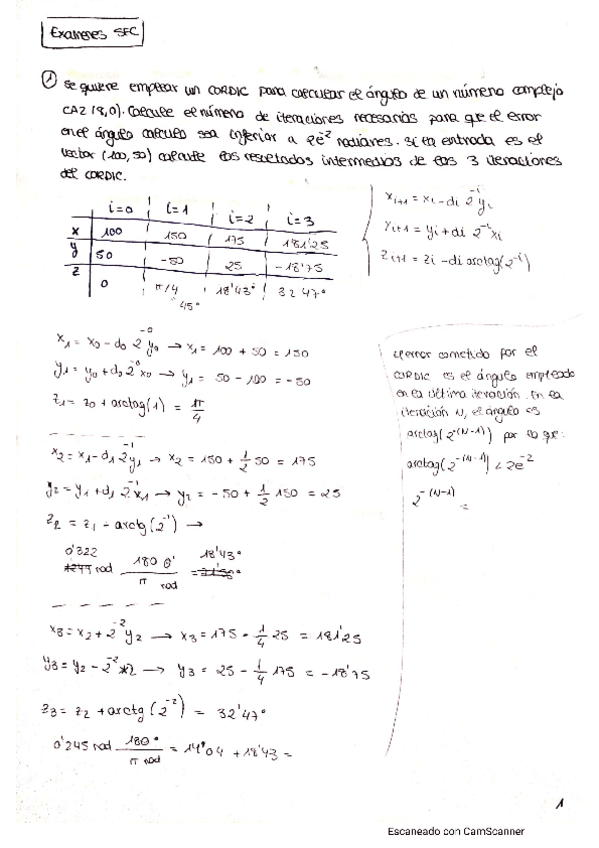 Exámenes SFC
① Se quiere emplear un CORDIC para calcular el ángulo de un número complejo
CA2 (8,0). Calcule el número de iteraciones necesarias para que el error
en el ángulo calculo sea inferior a 2e⁻² radianes. Si la entrada es el
vector (100, 50) calcule los resultados intermedios de las 3 iteraciones
del CORDIC.
i=0 i=1 i=2 i=3
x 100 150 175 181'25
y 50 -50 25 -18'75
z 0 π/4 18'43° 32'47°
45°
xᵢ₊₁ = xᵢ - dᵢ 2⁻ⁱ yᵢ
yᵢ₊₁ = yᵢ + dᵢ 2⁻ⁱ xᵢ
zᵢ₊₁ = zᵢ - dᵢ arctag(2⁻ⁱ)
x₁ = x₀ - d₀ 2⁻⁰ y₀ → x₁ = 100 + 50 = 150
y₁ = y₀ + d₀ 2⁻⁰ x₀ → y₁ = 50 - 100 = -50
z₁ = z₀ + arctag(1) = π/4
x₂ = x₁ - d₁ 2⁻¹ y₁ → x₂ = 150 + 1/2 50 = 175
y₂ = y₁ + d₁ 2⁻¹ x₁ → y₂ = -50 + 1/2 150 = 25
z₂ = z₁ - arctg(2⁻¹) →
0'322 rad 180°/π rad 18'43°
x₃ = x₂ + 2⁻² y₂ → x₃ = 175 - 1/4 25 = 181'25
y₃ = y₂ - 2⁻² x₂ → y₃ = 25 - 1/4 175 = -18'75
z₃ = z₂ + arctg(2⁻²) = 32'47°
0'245 rad 180°/π rad = 14°04 + 18'43 =
El error cometido por el
CORDIC es el ángulo empleado
en la última iteración. En la
iteración N, el ángulo es
arctag(2⁻⁽ᴺ⁻¹⁾) por lo que:
arctag(2⁻⁽ᴺ⁻¹⁾) < 2e⁻²
2⁻⁽ᴺ⁻¹⁾ =
1
Escaneado con CamScanner